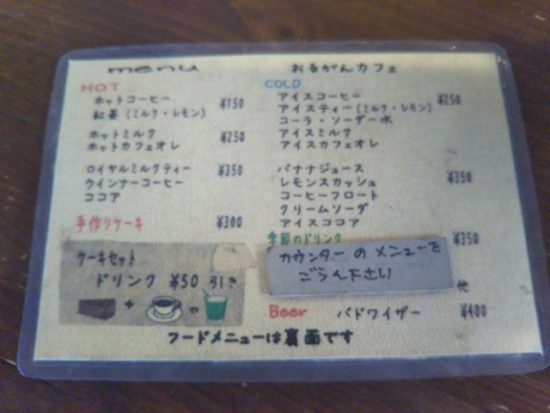 menu
おるがんカフェ
HOT
ホットコーヒー
紅茶(ミルク・レモン)
¥150
ホットミルク
ホットカフェオレ
¥250
ロイヤルミルクティー
ウインナーコーヒー
ココア
¥350
手作りケーキ ¥300
ケーキセット
ドリンク ¥50 引き
+ or
COLD
アイスコーヒー
アイスティー(ミルク・レモン)
コーラ・ソーダー水
アイスミルク
アイスカフェオレ
¥250
バナナジュース
レモンスカッシュ
コーヒーフロート
クリームソーダ
アイスココア
¥350
季節のドリンク ¥350
カウンターのメニューを
ごらん下さい
他
Beer バドワイザー ¥400
フードメニューは裏面です